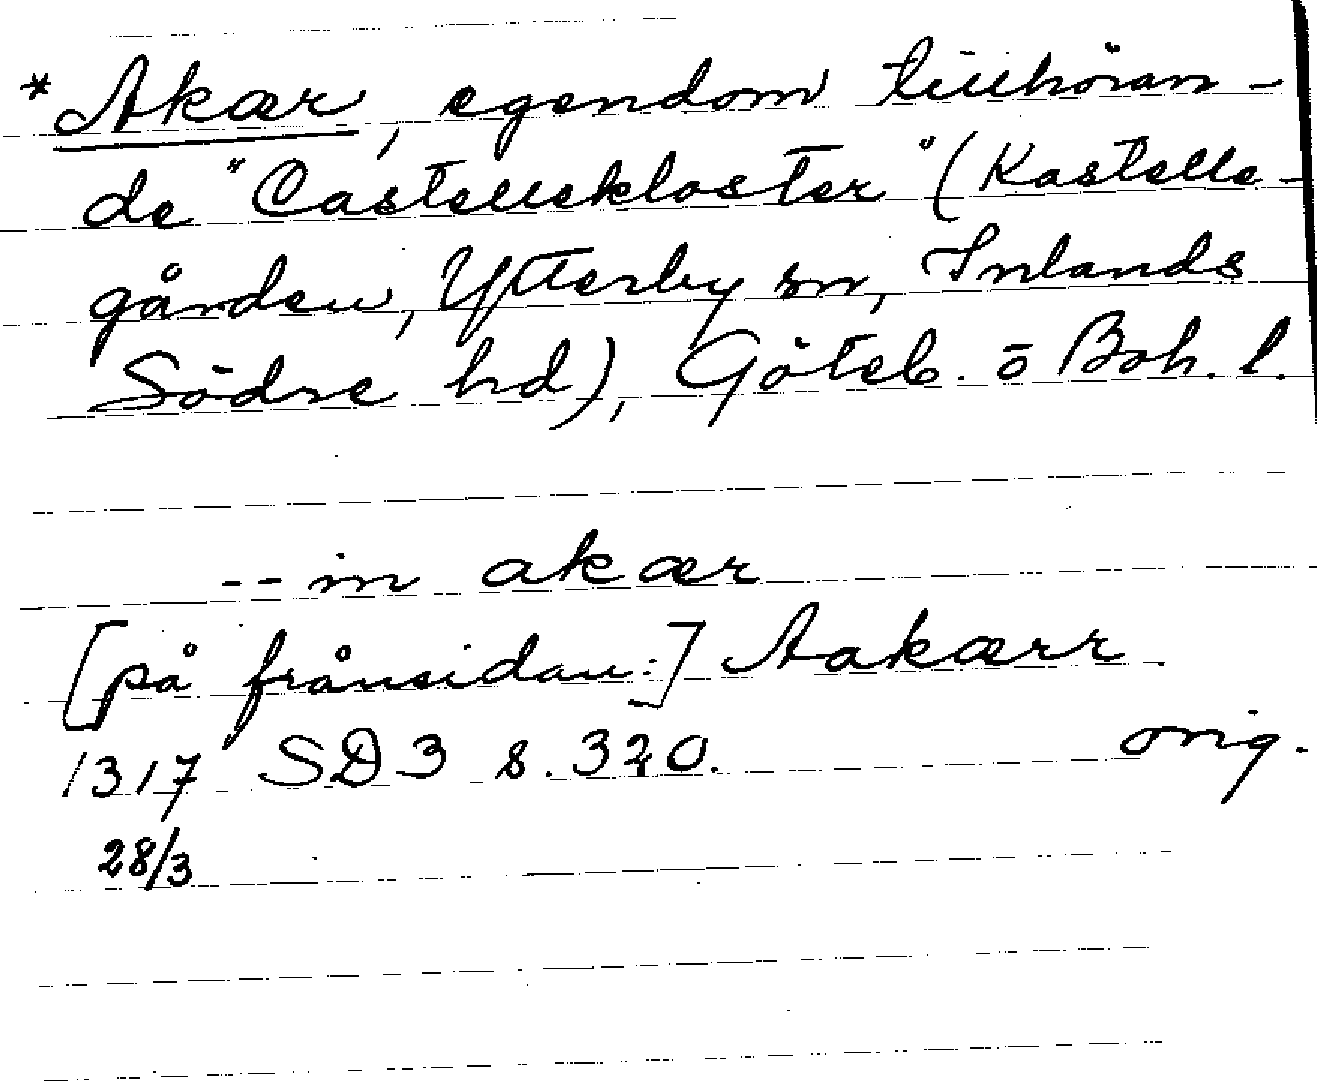 *Akær, egendom tillhöran-
de "Castellekloster" (Kastelle-
gården, Ytterby sn, Inlands
Södre hd), Göteb. o Boh. l.
-- in akær
[på frånsidan:] Aakærr.
1317 SD 3 s. 320. orig.
28/3